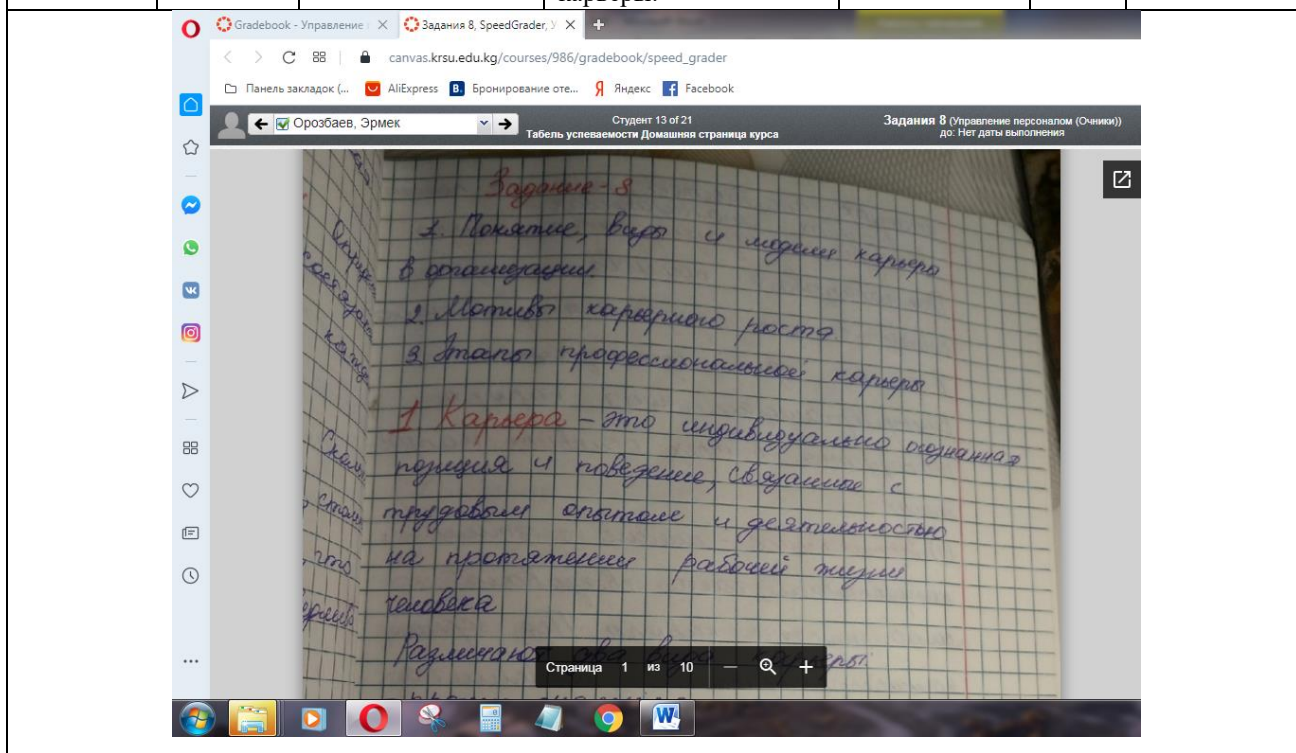 карьеры.
Gradebook - Управление
Задания 8, SpeedGrader, У
canvas.krsu.edu.kg/courses/986/gradebook/speed_grader
Панель закладок (...
AliExpress
B. Бронирование оте...
Я Яндекс
Facebook
Орозбаев, Эрмек
Студент 13 of 21
Табель успеваемости Домашняя страница курса
Задания 8 (Управление персоналом (Очники))
до: Нет даты выполнения
Задание - 8
1. Понятие, виды и модели карьеры
в организации.
2. Мотивы карьерного роста.
3. Этапы профессиональной карьеры
1 Карьера - это индивидуально осознанная
позиция и поведение, связанное с
трудовым опытом и деятельностью
на протяжении рабочей жизни
человека
Различают два вида карьеры:
Страница 1 из 10